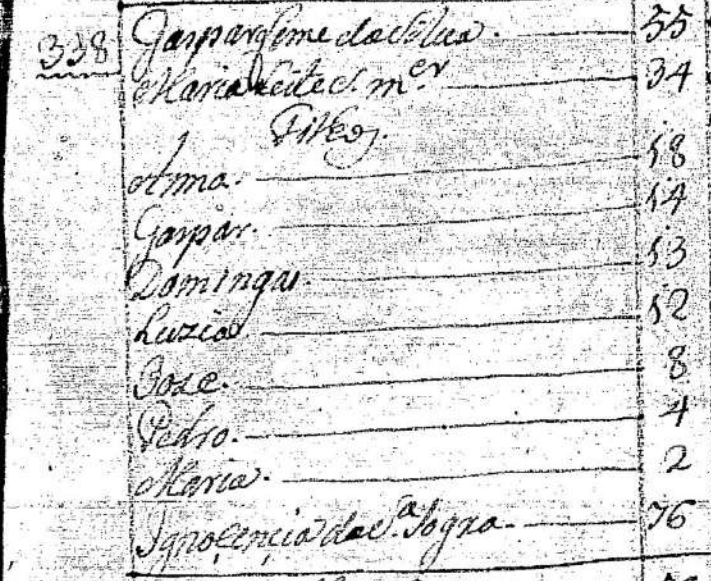 338 Gaspar Leme da Silva. 55
Maria Leite S. m.er 34
Filhos.
Anna. 18
Gaspar. 14
Domingas. 13
Luzia 12
Joze. 8
Pedro. 4
Maria. 2
Ignocencia da S.a Sogra. 76